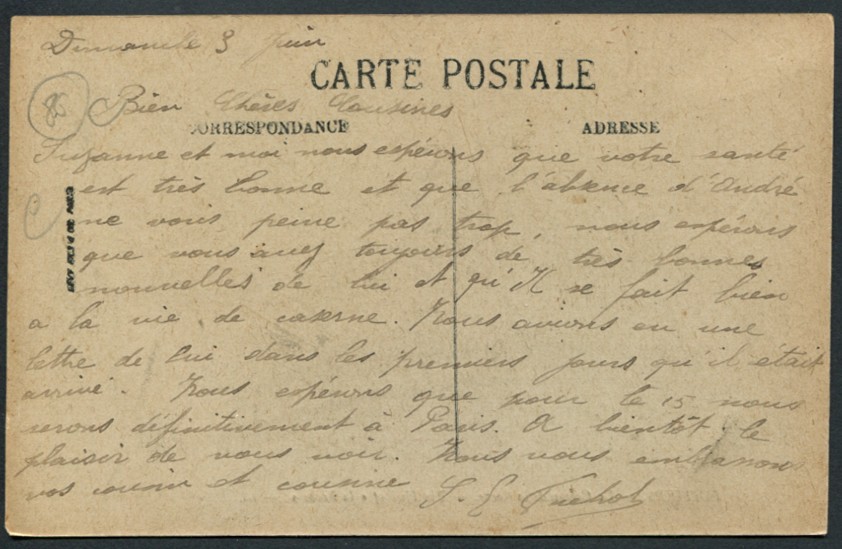 Dimanche 3 Juin
CARTE POSTALE
85
Bien Chères Cousines
CORRESPONDANCE
ADRESSE
Suzanne et moi nous espérons que votre santé
est très bonne et que l'absence d'André
ne vous peine pas trop, nous espérons
que vous avez toujours de très bonnes
nouvelles de lui et qu'Il se fait bien
a la vie de caserne. Nous avions eu une
lettre de lui dans les premiers jours qu'il était
arrivé. Nous espérons que pour le 15 nous
serons définitivement à Paris. A bientôt le
plaisir de vous voir. Nous vous embrassons
vos cousin et cousine